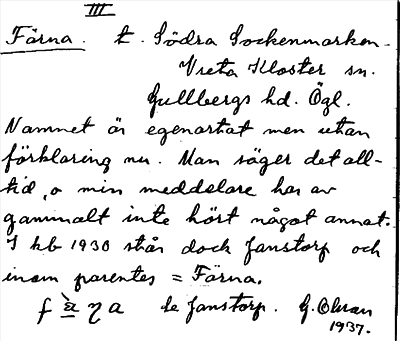 III
Färna. t. Södra Sockenmarken.
Vreta Kloster sn.
Gullbergs hd. Ögl.
Namnet är egenartat men utan
förklaring nu. Man säger det all-
tid, o min meddelare har av
gammalt inte hört något annat.
I kb 1930 står dock Janstorp och
inom parentes = Färna.
f ä̀ η a se Janstorp. G. Olson
1937.